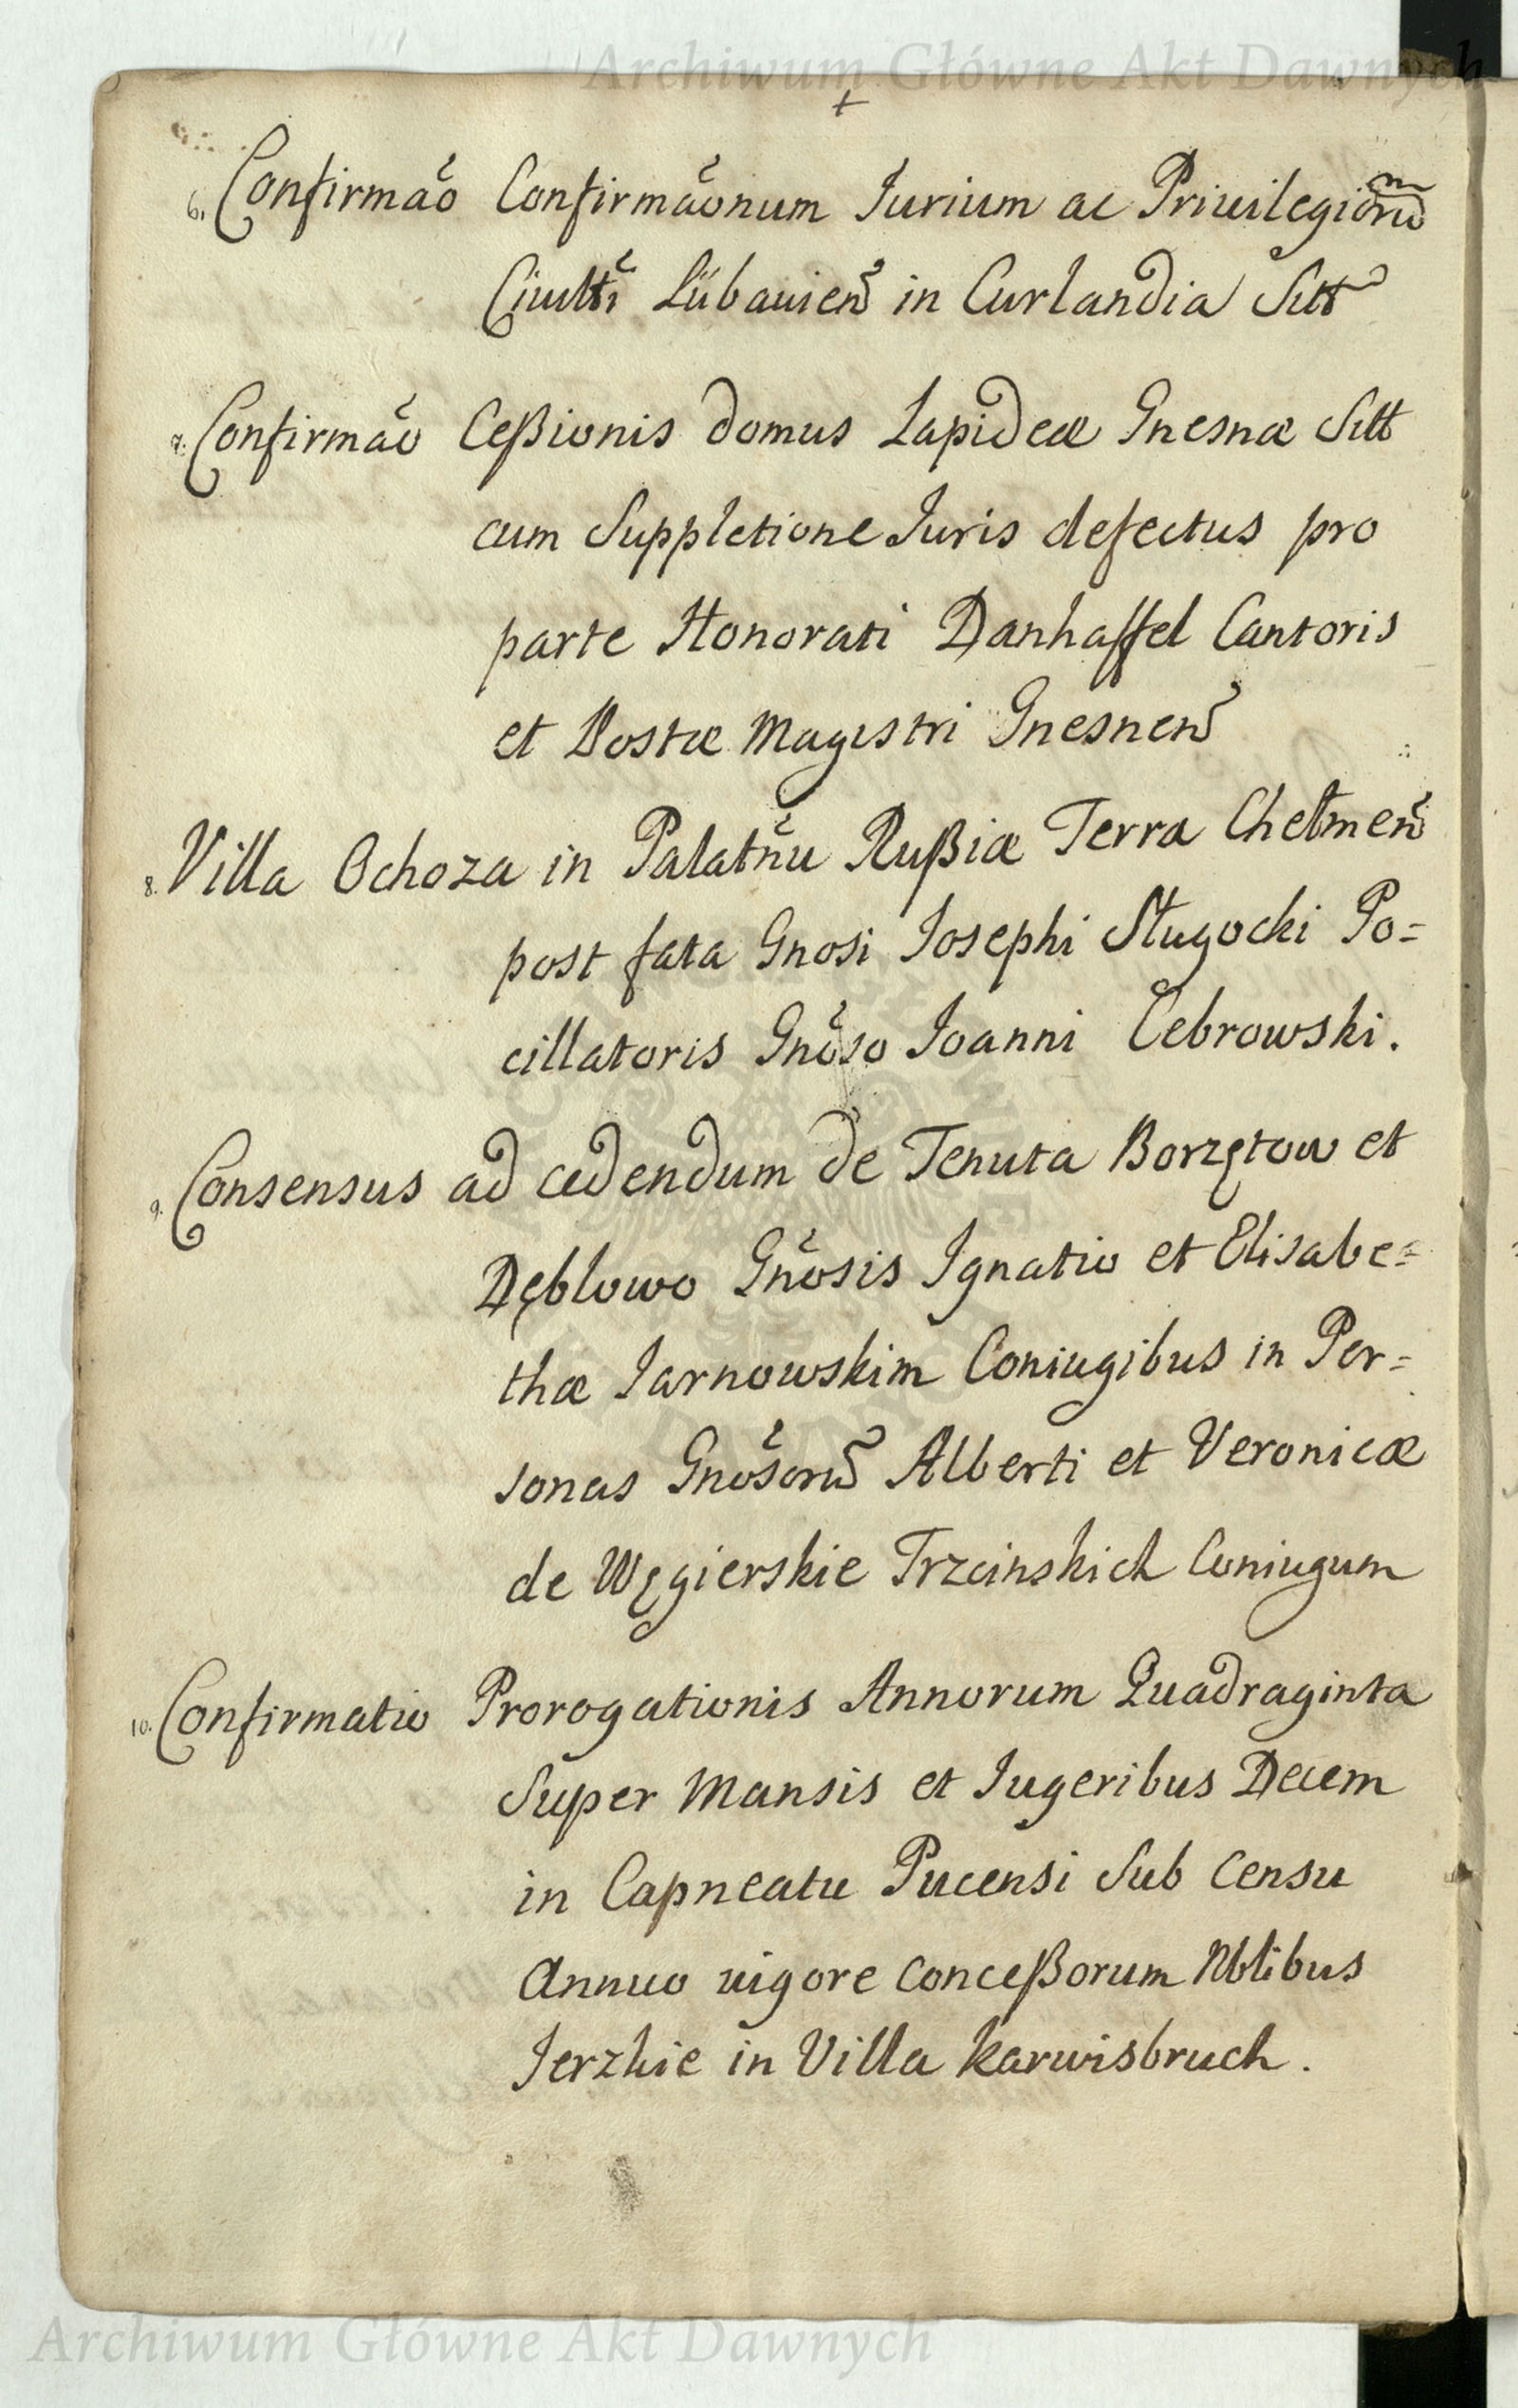 Archiwum Główne Akt Dawnych
+
6. Confirmao͂ Confirmao͂num Iurium ac Priuilegiorum
Ciuitti Lübauien͂ in Curlandia Sitt
7. Confirmao͂ Ceßionis domus Lapideæ Gnesnæ Sitt
cum Suppletione Iuris defectus pro
parte Honorati Danhaffel Cantoris
et Postæ Magistri Gnesnen͂
8. Villa Ochoza in Palatn͂u Rußiæ Terra Chełmen͂
post fata Gnosi Iosephi Sługocki Po=
cillatoris Gno͂so Ioanni Cebrowski.
9. Consensus ad cedendum de Tenuta Borzętow et
Dęblowo Gno͂sis Ignatio et Elisabe=
thæ Iarnowskim Coniugibus in Per=
sonas Gno͂soru͂ Alberti et Veronicæ
de Węgierskie Trzcinskich Coniugum
10. Confirmatio Prorogationis Annorum Quadraginta
Super Mansis et Iugeribus Decem
in Capneatu Pucensi Sub Censu
Annuo uigore Conceßorum Nblibus
Ierzkie in Villa Karwisbruch.
Archiwum Główne Akt Dawnych